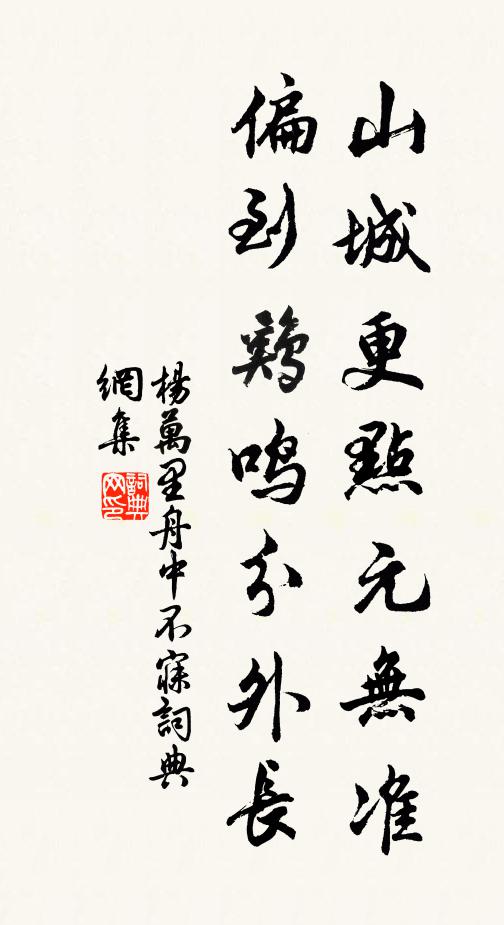 山城更點元無准
偏到鷄鳴分外長
楊萬里舟中不寐詞典
網集
詞典
网印